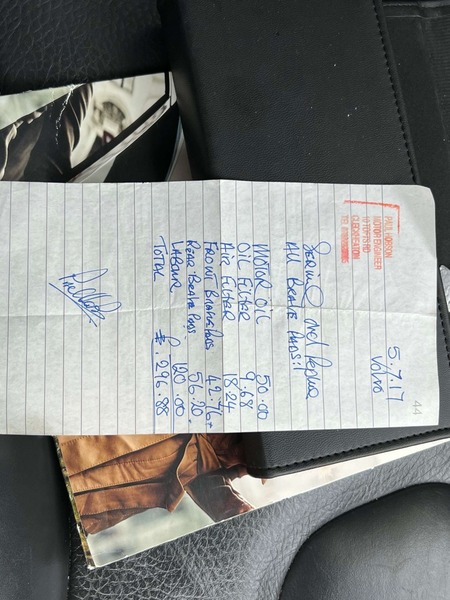 44
5.7.17
VOLVO
PAUL HOBSON
MOTOR ENGINEER
10 TOFTS RD
CLECKHEATON
SERVICE and Replace
All BRAKE PADS:
MOTOR OIL 50.00
OIL FILTER 9.68
AIR FILTER 18.24
FRONT BRAKE PADS 42.76
REAR BRAKE PADS. 56.20
LABOUR £ 120.00
TOTAL £. 296.88